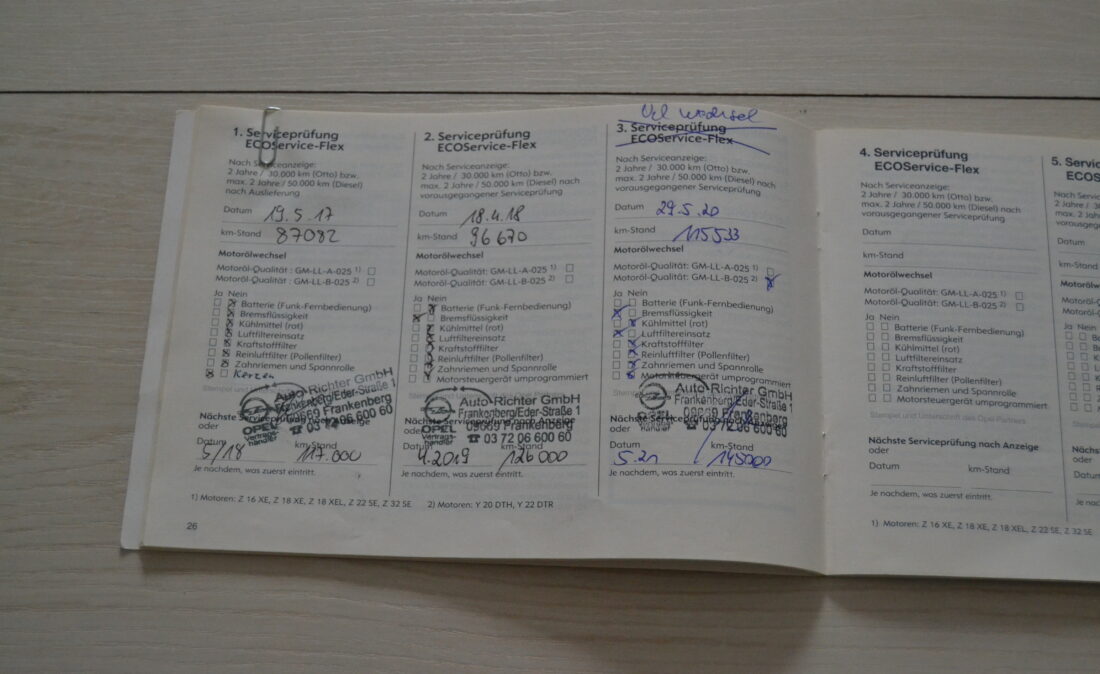 1. Serviceprüfung
ECOService-Flex
Nach Serviceanzeige:
2 Jahre / 30.000 km (Otto) bzw.
max. 2 Jahre / 50.000 km (Diesel)
nach Auslieferung
Datum 19.5.17
km-Stand 87082
Motorölwechsel
Motoröl-Qualität : GM-LL-A-025 1)
Motoröl-Qualität : GM-LL-B-025 2)
Ja Nein
Batterie (Funk-Fernbedienung)
Bremsflüssigkeit
Kühlmittel (rot)
Luftfiltereinsatz
Kraftstofffilter
Reinluftfilter (Pollenfilter)
Zahnriemen und Spannrolle
Kerzen
Auto-Richter GmbH
Frankenberg/Eder-Straße 1
09669 Frankenberg
☎ 03 72 06 600 60
OPEL
Vertrags-
händler
Nächste Serviceprüfung nach Anzeige
oder
Datum km-Stand
5/18 117.000
Je nachdem, was zuerst eintritt.
2. Serviceprüfung
ECOService-Flex
Nach Serviceanzeige:
2 Jahre / 30.000 km (Otto) bzw.
max. 2 Jahre / 50.000 km (Diesel) nach
vorausgegangener Serviceprüfung
Datum 18.4.18
km-Stand 96670
Motorölwechsel
Motoröl-Qualität: GM-LL-A-025 1)
Motoröl-Qualität: GM-LL-B-025 2)
Ja Nein
Batterie (Funk-Fernbedienung)
Bremsflüssigkeit
Kühlmittel (rot)
Luftfiltereinsatz
Kraftstofffilter
Reinluftfilter (Pollenfilter)
Zahnriemen und Spannrolle
Motorsteuergerät umprogrammiert
Auto-Richter GmbH
Frankenberg/Eder-Straße 1
09669 Frankenberg
☎ 03 72 06 600 60
OPEL
Vertrags-
händler
Nächste Serviceprüfung nach Anzeige
oder
Datum km-Stand
4.2019 126000
Je nachdem, was zuerst eintritt.
Öl wechsel
3. Serviceprüfung
ECOService-Flex
Nach Serviceanzeige:
2 Jahre / 30.000 km (Otto) bzw.
max. 2 Jahre / 50.000 km (Diesel) nach
vorausgegangener Serviceprüfung
Datum 29.5.20
km-Stand 115533
Motorölwechsel
Motoröl-Qualität: GM-LL-A-025 1)
Motoröl-Qualität: GM-LL-B-025 2)
Ja Nein
Batterie (Funk-Fernbedienung)
Bremsflüssigkeit
Kühlmittel (rot)
Luftfiltereinsatz
Kraftstofffilter
Reinluftfilter (Pollenfilter)
Zahnriemen und Spannrolle
Motorsteuergerät umprogrammiert
Auto-Richter GmbH
Frankenberg/Eder-Straße 1
09669 Frankenberg
☎ 03 72 06 600 60
OPEL
händler
Nächste Serviceprüfung nach Anzeige
oder
Datum km-Stand
5.21 145000
Je nachdem, was zuerst eintritt.
1) Motoren: Z 16 XE, Z 18 XE, Z 18 XEL, Z 22 SE, Z 32 SE 2) Motoren: Y 20 DTH, Y 22 DTR
26
4. Serviceprüfung
ECOService-Flex
Nach Serviceanzeige:
2 Jahre / 30.000 km (Otto) bzw.
max. 2 Jahre / 50.000 km (Diesel) nach
vorausgegangener Serviceprüfung
Datum
km-Stand
Motorölwechsel
Motoröl-Qualität: GM-LL-A-025 1)
Motoröl-Qualität: GM-LL-B-025 2)
Ja Nein
Batterie (Funk-Fernbedienung)
Bremsflüssigkeit
Kühlmittel (rot)
Luftfiltereinsatz
Kraftstofffilter
Reinluftfilter (Pollenfilter)
Zahnriemen und Spannrolle
Motorsteuergerät umprogrammiert
Stempel und Unterschrift des Opel Partners
Nächste Serviceprüfung nach Anzeige
oder
Datum km-Stand
Je nachdem, was zuerst eintritt.
1) Motoren: Z 16 XE, Z 18 XE, Z 18 XEL, Z 22 SE, Z 32 SE
5. Servic
ECOS
Nach Service
2 Jahre / 30
max. 2 Jahre
vorausgegan
Datum
km-Stand
Motorölw
Motoröl-Q
Motoröl-Q
Ja Nein
Nächst
oder
Datum
Je nac